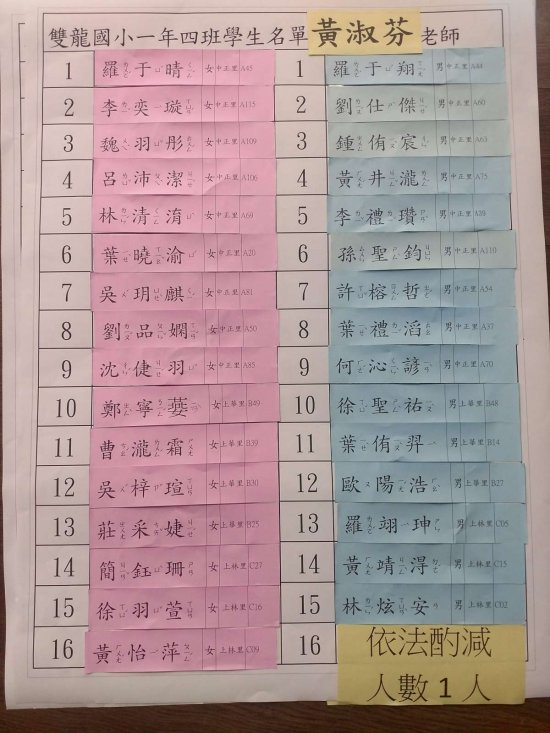 雙龍國小一年四班學生名單 黃淑芬 老師
1 羅于晴 女 中正里 A45 1 羅于翔 男 中正里 A44
2 李奕璇 女 中正里 A115 2 劉仕傑 男 中正里 A60
3 魏羽彤 女 中正里 A109 3 鍾侑宸 男 中正里 A63
4 呂沛潔 女 中正里 A106 4 黃井瀧 男 中正里 A75
5 林清淯 女 中正里 A69 5 李禮瓚 男 中正里 A39
6 葉曉渝 女 中正里 A20 6 孫聖鈞 男 中正里 A110
7 吳玥麒 女 中正里 A81 7 許榕哲 男 中正里 A54
8 劉品嫻 女 中正里 A50 8 葉禮滔 男 中正里 A37
9 沈倢羽 女 中正里 A85 9 何沁諺 男 中正里 A70
10 鄭寧 女 上華里 B49 10 徐聖祐 男 上華里 B48
11 曹瀧霜 女 上華里 B39 11 葉侑羿 男 上華里 B14
12 吳梓瑄 女 上華里 B30 12 歐陽浩 男 上華里 B27
13 莊采婕 女 上華里 B25 13 羅翊珅 男 上林里 C05
14 簡鈺珊 女 上林里 C27 14 黃靖淂 男 上林里 C15
15 徐羽萱 女 上林里 C16 15 林炫安 男 上林里 C02
16 黃怡萍 女 上林里 C09 16 依法酌減
人數1人